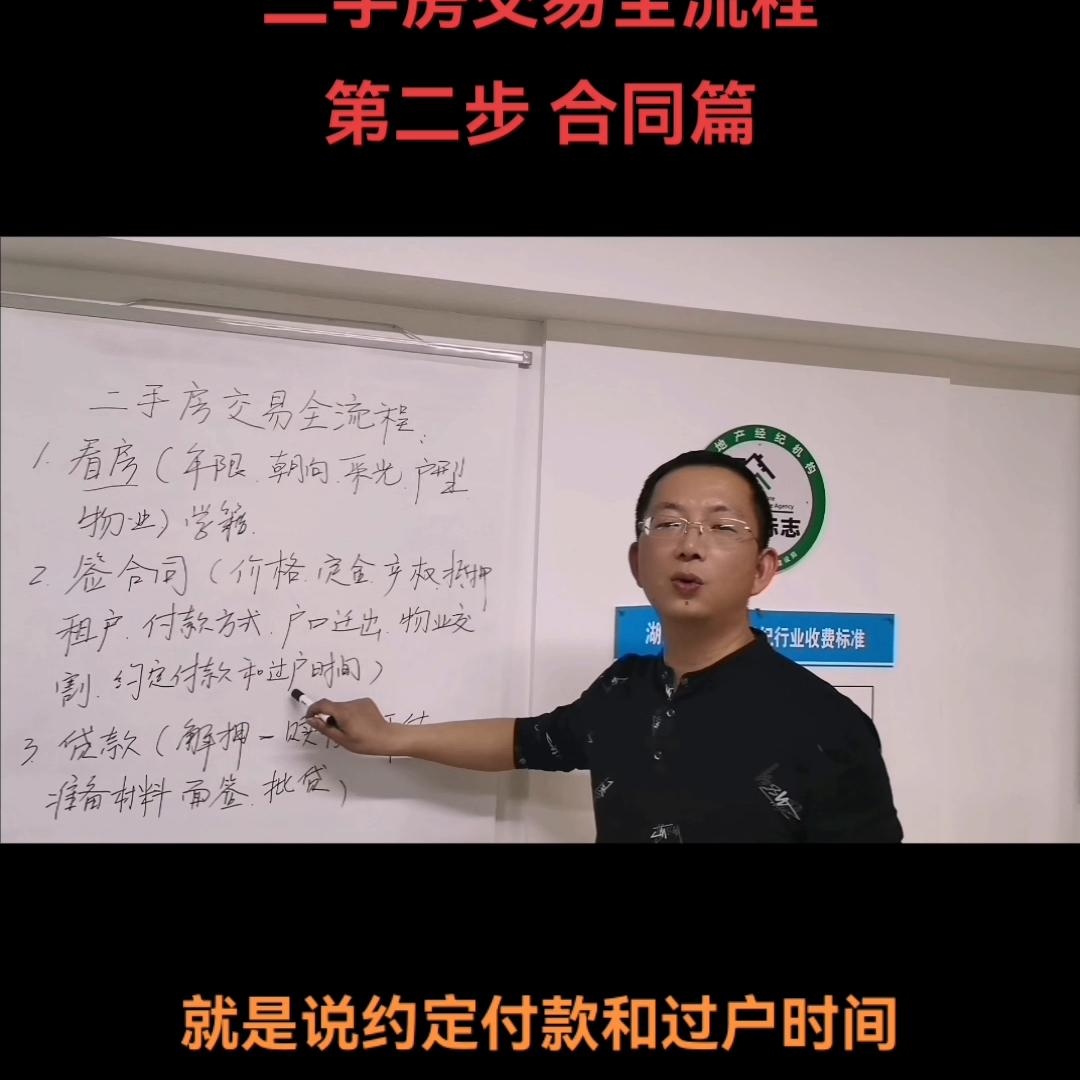 二手房交易全流程
第二步 合同篇
二手房交易全流程:
1. 看房(年限.朝向.采光.户型
物业)学籍.
2. 签合同(价格.定金.产权.抵押
租户.付款方式.户口迁出.物业交
割.约定付款和过户时间)
3. 贷款(解押-
准备材料 面签.批贷)
地产经纪机构
Agency
标志
湖
纪行业收费标准
就是说约定付款和过户时间